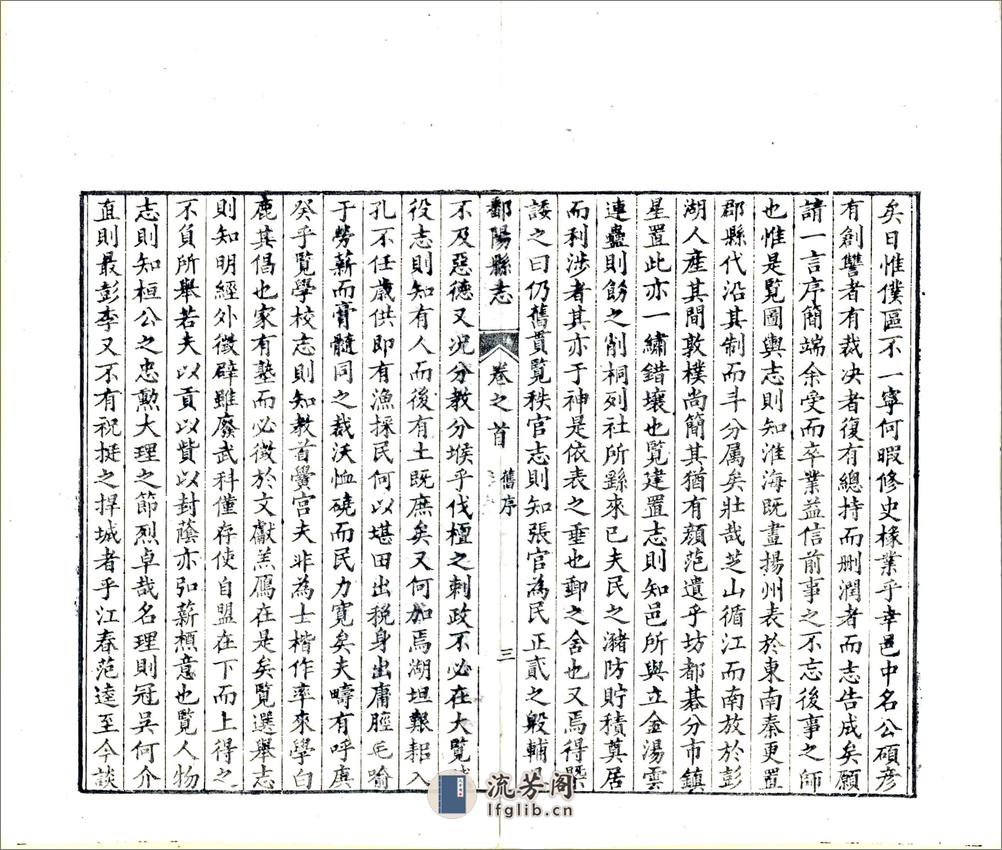 矣日惟僕區不一寧何暇修史椽業乎幸邑中名公碩彦
有創讐者有裁决者復有總持而删潤者而志告成矣願
請一言序簡端余受而卒業益信前事之不忘後事之師
也惟是覧圖輿志則知淮海既畫揚州表於東南秦更置
郡縣代沿其制而斗分属矣壯哉芝山循江而南放於彭
湖人産其間敦樸尚簡其猶有顔范遺乎坊都碁分市鎮
星置此亦一繡錯壤也覧建置志則知邑所與立金湯雲
連蠱則飭之削桐列社所繇來已夫民之瀦防貯積奠居
而利涉者其亦于神是依表之垂也郵之舍也又焉得槩
諉之曰仍舊貫覧秩官志則知張官為民正貳之般輔
鄱陽縣志
卷之首
舊序
三
不及惡德又况分教分堠乎伐檀之刺政不必在大覧
役志則知有人而後有土既庶矣又何加焉湖坦艱耜入
孔不任歳供即有漁採民何以堪田出税身出庸脛毛踰
于勞薪而膏髓同之裁沃恤磽而民力寛矣夫疇有呼庚
癸乎覧學校志則知教首黌宫夫非為士楷作率來學白
鹿其倡也家有塾而必徴於文獻羔鴈在是矣覧選舉志
則知明經外徴辟雖廢武科僅存使自盟在下而上得之
不負所舉若夫以貢以貲以封蔭亦弘薪槱意也覧人物
志則知桓公之忠勲大理之節烈卓哉名理則冠吳何介
直則最彭李又不有祝挺之捍城者乎江春范逵至今談
流芳阁
lfglib.cn